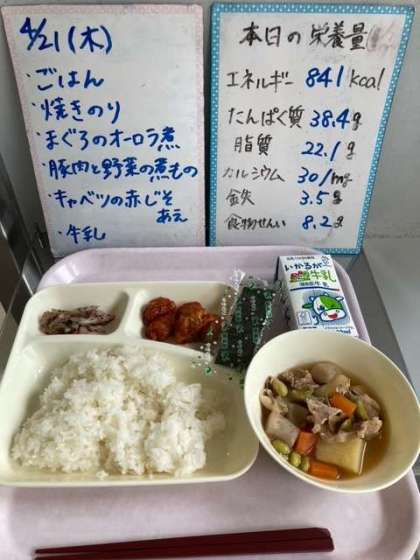 4/21(木)
・ごはん
・焼きのり
・まぐろのオーロラ煮
・豚肉と野菜の煮もの
・キャベツの赤じそ
あえ
・牛乳
本日の栄養量
エネルギー 841kcal
たんぱく質 38.4g
脂質 22.1g
カルシウム 301mg
鉄 3.5g
食物せんい 8.2g
いかるが
牛乳